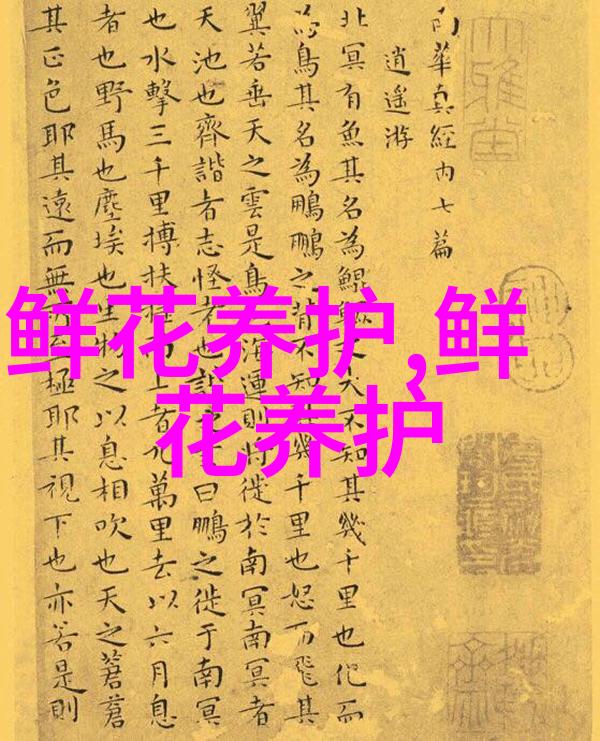 鲜花养护,鲜
花养护
大雅堂
南華真經內七篇
逍遙游
北冥有魚其名為鯤鯤之大不知其幾千里也化而
為鳥其名為鵬鵬之背不知其幾千里也怒而飛其
翼若垂天之雲是鳥海運則將徙於南冥南冥者
天池也齊諧者志怪者也之曰鵬之徙于南冥
也水擊三千里搏扶搖而上者九萬里去以六月息
者也野馬也塵埃也生物之以息相吹也天之蒼蒼
其正色耶其遠而無極耶其視下也亦若是則